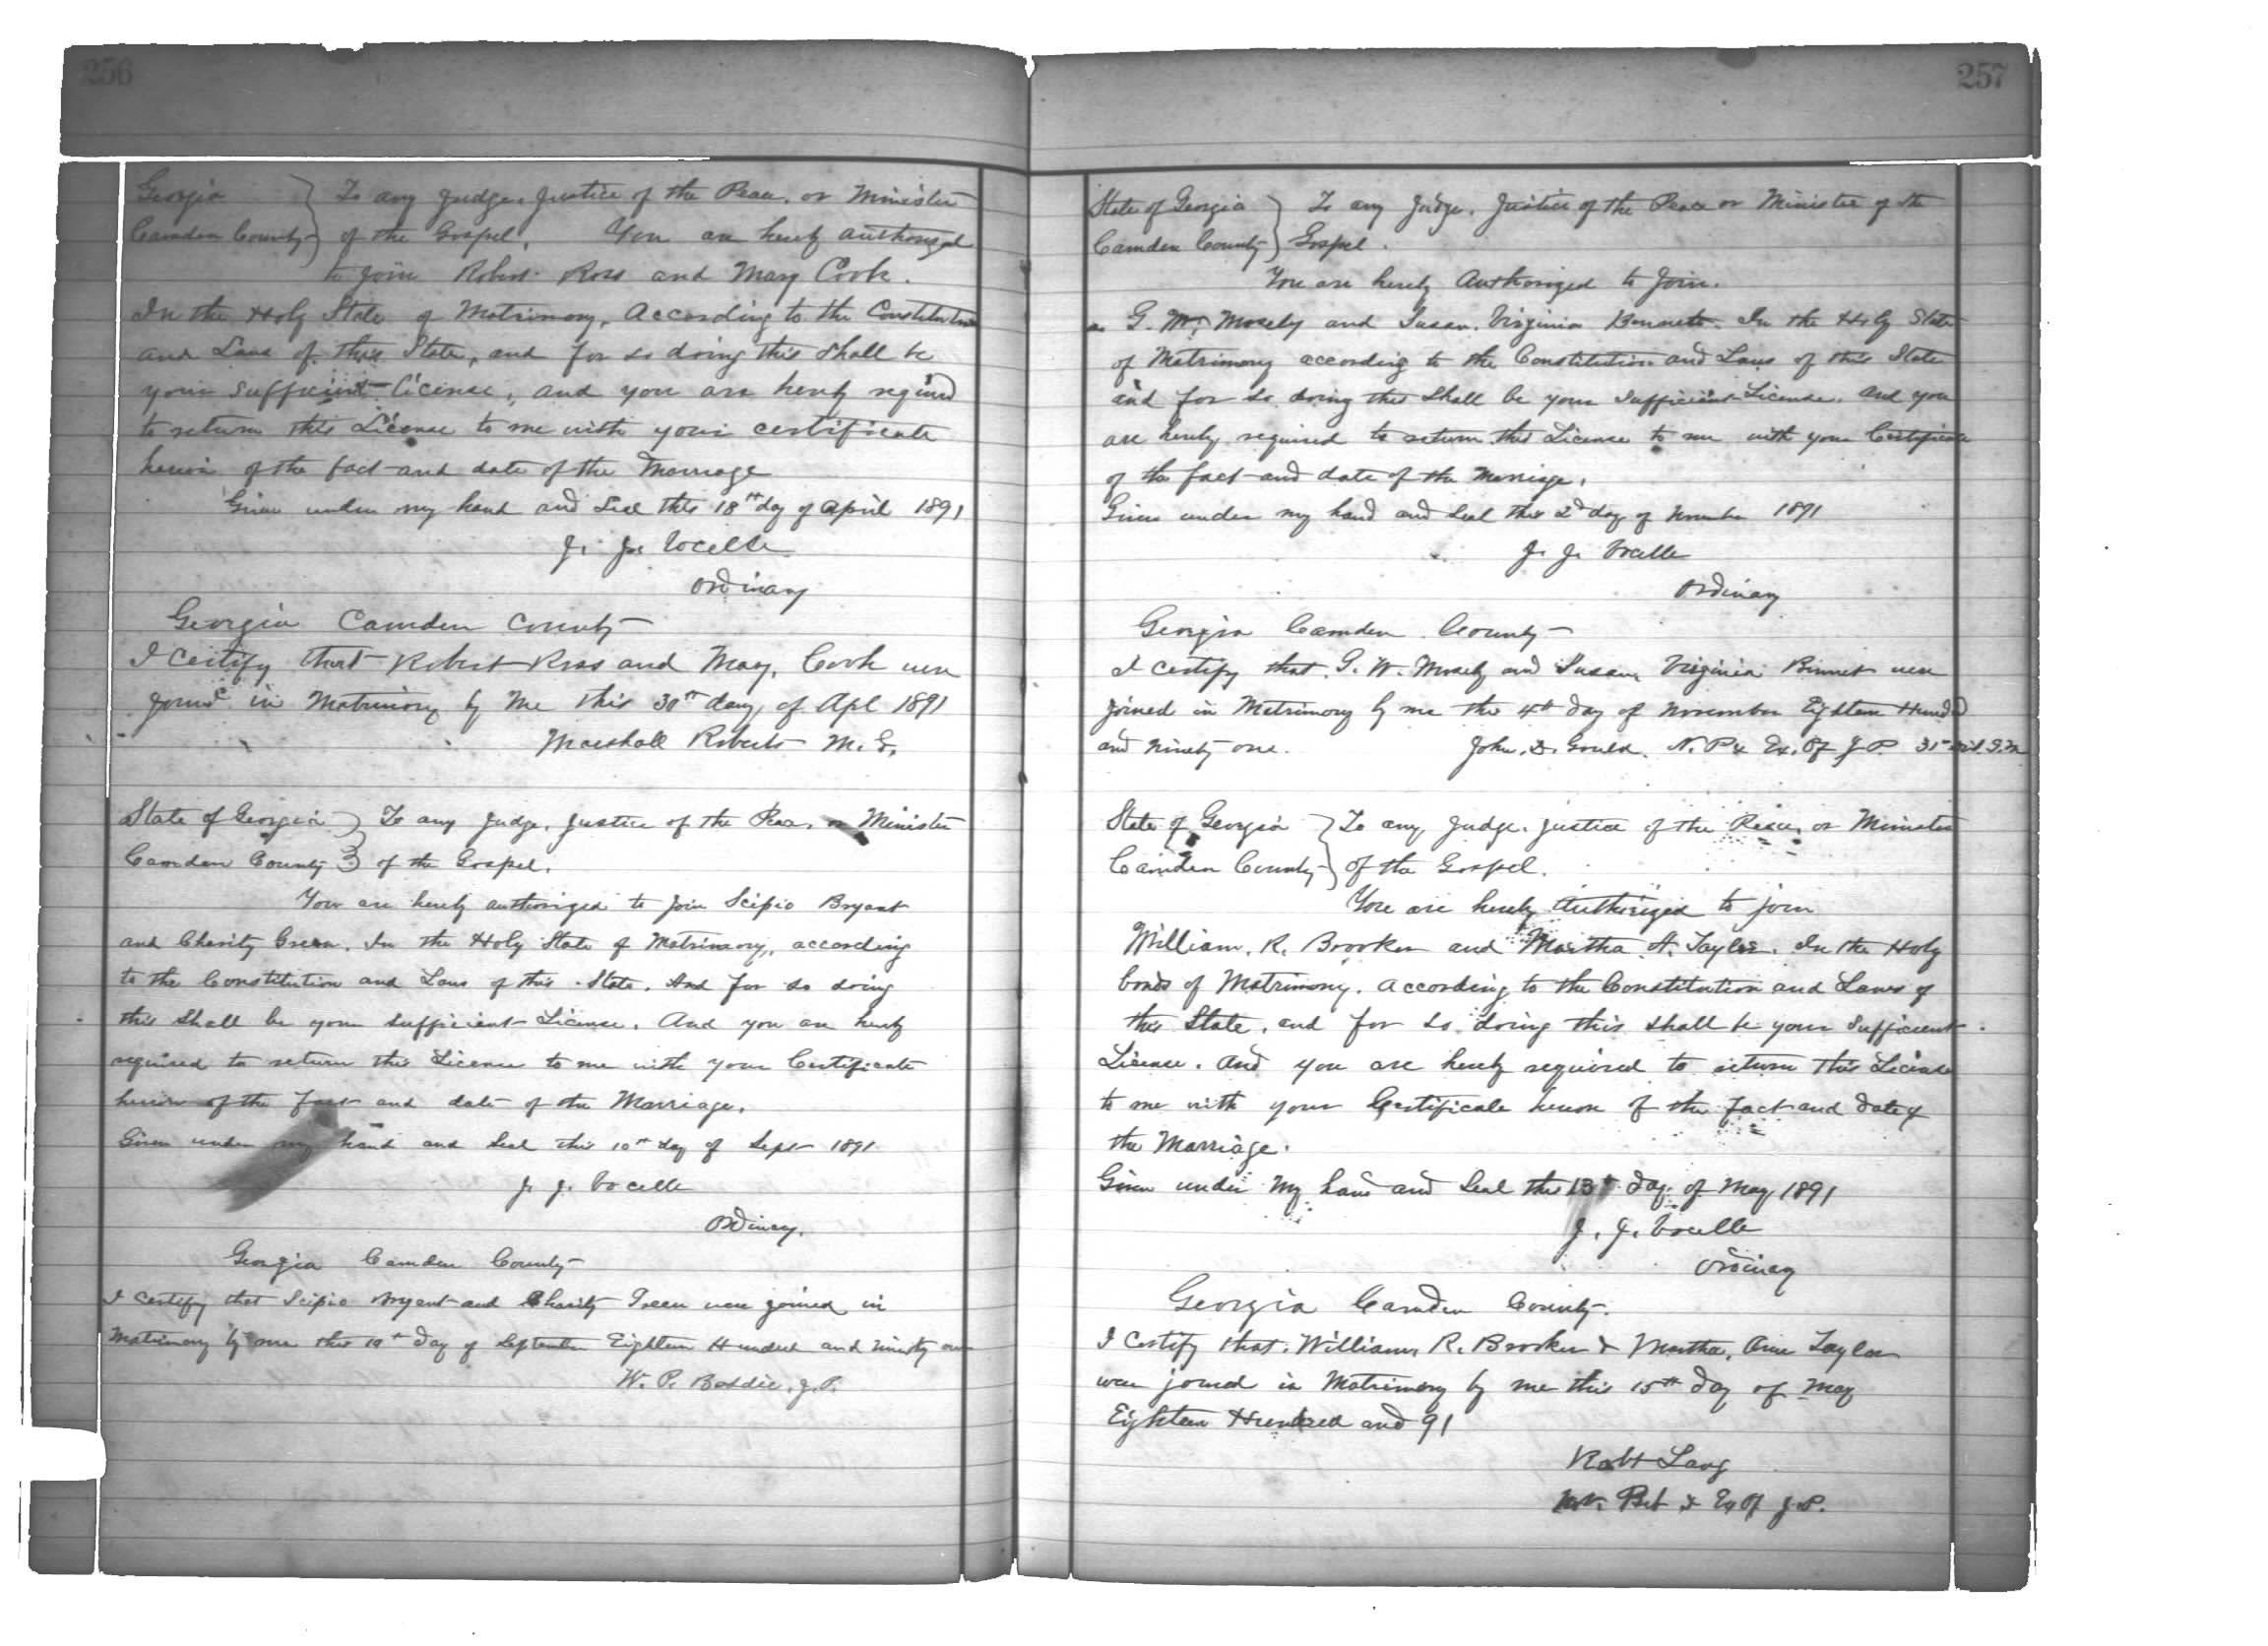 256
Georgia } To any Judge, Justice of the Peace, or Minister
Camden County } of the Gospel. You are hereby authorized
to join Robert Ross and Mary Cook.
In the Holy State of Matrimony, According to the Constitution
and Laws of this State, and for so doing this shall be
your sufficient license, and you are hereby required
to return this License to me with your certificate
hereon of the fact and date of the Marriage
Given under my hand and Seal this 18th day of April 1891
J. J. Vocelle
Ordinary
Georgia Camden County
I certify that Robert Ross and Mary Cook were
joined in Matrimony by me this 30th day of Apl 1891
Marshall Roberts M.G.
State of Georgia } To any Judge, Justice of the Peace, or Minister
Camden County } of the Gospel.
You are hereby authorized to join Scipio Bryant
and Charity Green. In the Holy State of Matrimony, according
to the Constitution and Laws of this State. And for so doing
this shall be your sufficient License. And you are hereby
required to return this License to me with your Certificate
hereon of the fact and date of the Marriage.
Given under my hand and Seal this 10th day of Sept 1891
J. J. Vocelle
Ordinary.
Georgia Camden County
I certify that Scipio Bryant and Charity Green were joined in
Matrimony by me this 10th day of September Eighteen Hundred and Ninety one
W. P. Beddie, J.P.
257
State of Georgia } To any Judge, Justice of the Peace or Minister of the
Camden County } Gospel.
You are hereby Authorized to Join.
G. W. Mosely and Susan Virginia Bennett. In the Holy State
of Matrimony according to the Constitution and Laws of this State
and for so doing this shall be your sufficient License. And you
are hereby required to return this License to me with your Certificate
of the fact and date of the Marriage.
Given under my hand and Seal this 2d day of November 1891
J. J. Vocelle
Ordinary
Georgia Camden County
I certify that G. W. Mosely and Susan Virginia Binnet were
joined in Matrimony by me the 4th day of November Eighteen Hundred
and Ninety one. John D. Gould. N.P. & Ex. Of J.P. 31st Dist. G.M.
State of Georgia } To any Judge, Justice of the Peace, or Minister
Camden County } of the Gospel.
You are hereby Authorized to join
William. R. Brooker and Martha A. Taylor. In the Holy
bonds of Matrimony. According to the Constitution and Laws of
this State, and for so doing this shall be your Sufficient
License. And you are hereby required to return this License
to me with your Certificate hereon of the fact and date of
the Marriage.
Given under my hand and Seal this 13th day of May 1891
J. J. Vocelle
Ordinary
Georgia Camden County.
I certify that William R. Brooker & Martha Ann Taylor
were joined in Matrimony by me this 15th day of May
Eighteen Hundred and 91
Robt Lang
Not. Pub & Ex Of J.P.